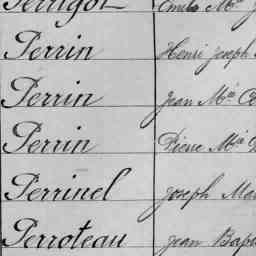 Perrigot Emile Mie
Perrin Henri Joseph
Perrin Jean Mie
Perrin Pierre Mie
Perrinel Joseph
Perroteau Jean